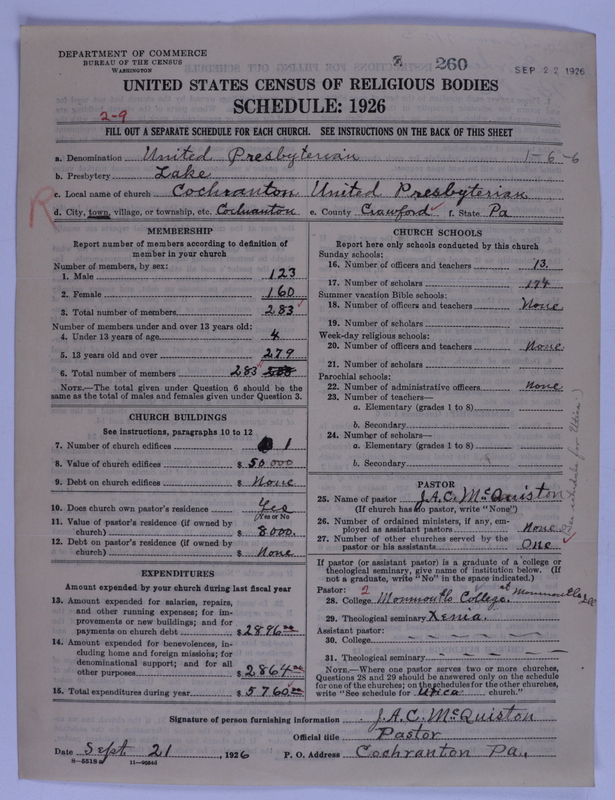 DEPARTMENT OF COMMERCE
BUREAU OF THE CENSUS
WASHINGTON
260
SEP 22 1926
UNITED STATES CENSUS OF RELIGIOUS BODIES
SCHEDULE: 1926
2-9
FILL OUT A SEPARATE SCHEDULE FOR EACH CHURCH. SEE INSTRUCTIONS ON THE BACK OF THIS SHEET
a. Denomination United Presbyterian 1-6-6
b. Presbytery Lake
c. Local name of church Cochranton United Presbyterian
R
d. City, town, village, or township, etc. Cochranton e. County Crawford f. State Pa
MEMBERSHIP
Report number of members according to definition of
member in your church
Number of members, by sex:
1. Male 123
2. Female 160
3. Total number of members 283
Number of members under and over 13 years old:
4. Under 13 years of age 4
5. 13 years old and over 279
6. Total number of members 283
NOTE.—The total given under Question 6 should be
same as the total of males and females given under Question 3.
CHURCH BUILDINGS
See instructions, paragraphs 10 to 12
7. Number of church edifices 1
8. Value of church edifices $ 50 000
9. Debt on church edifices $ None
10. Does church own pastor's residence Yes
(Yes or No
11. Value of pastor's residence (if owned by
church) $ 8000.
12. Debt on pastor's residence (if owned by
church) $ None
EXPENDITURES
Amount expended by your church during last fiscal year
13. Amount expended for salaries, repairs,
and other running expenses; for im-
provements or new buildings; and for
payments on church debt $ 2896.00
14. Amount expended for benevolences, in-
cluding home and foreign missions; for
denominational support; and for all
other purposes $ 2864.00
15. Total expenditures during year $ 5760.00
CHURCH SCHOOLS
Report here only schools conducted by this church
Sunday schools:
16. Number of officers and teachers 13.
17. Number of scholars 174
Summer vacation Bible schools:
18. Number of officers and teachers None
19. Number of scholars
Week-day religious schools:
20. Number of officers and teachers None
21. Number of scholars
Parochial schools:
22. Number of administrative officers None
23. Number of teachers—
a. Elementary (grades 1 to 8)
b. Secondary
24. Number of scholars—
a. Elementary (grades 1 to 8)
b. Secondary
PASTOR
25. Name of pastor J.A.C. McQuiston
(If church has no pastor, write "None")
26. Number of ordained ministers, if any, em-
ployed as assistant pastors None
27. Number of other churches served by the
pastor or his assistants One
See schedule for Utica
If pastor (or assistant pastor) is a graduate of a college or
theological seminary, give name of institution below. (If
not a graduate, write "No" in the space indicated.)
Pastor: 2
28. College Monmouth College. at Monmouth Ill
29. Theological seminary Xenia.
Assistant pastor:
30. College
31. Theological seminary
NOTE.—Where one pastor serves two or more churches,
Questions 28 and 29 should be answered only on the schedule
for one of the churches; on the schedules for the other churches,
write "See schedule for Utica church."
Signature of person furnishing information J.A.C. McQuiston
Official title Pastor
Date Sept. 21, 1926 P. O. Address Cochranton Pa.,
8-5518a